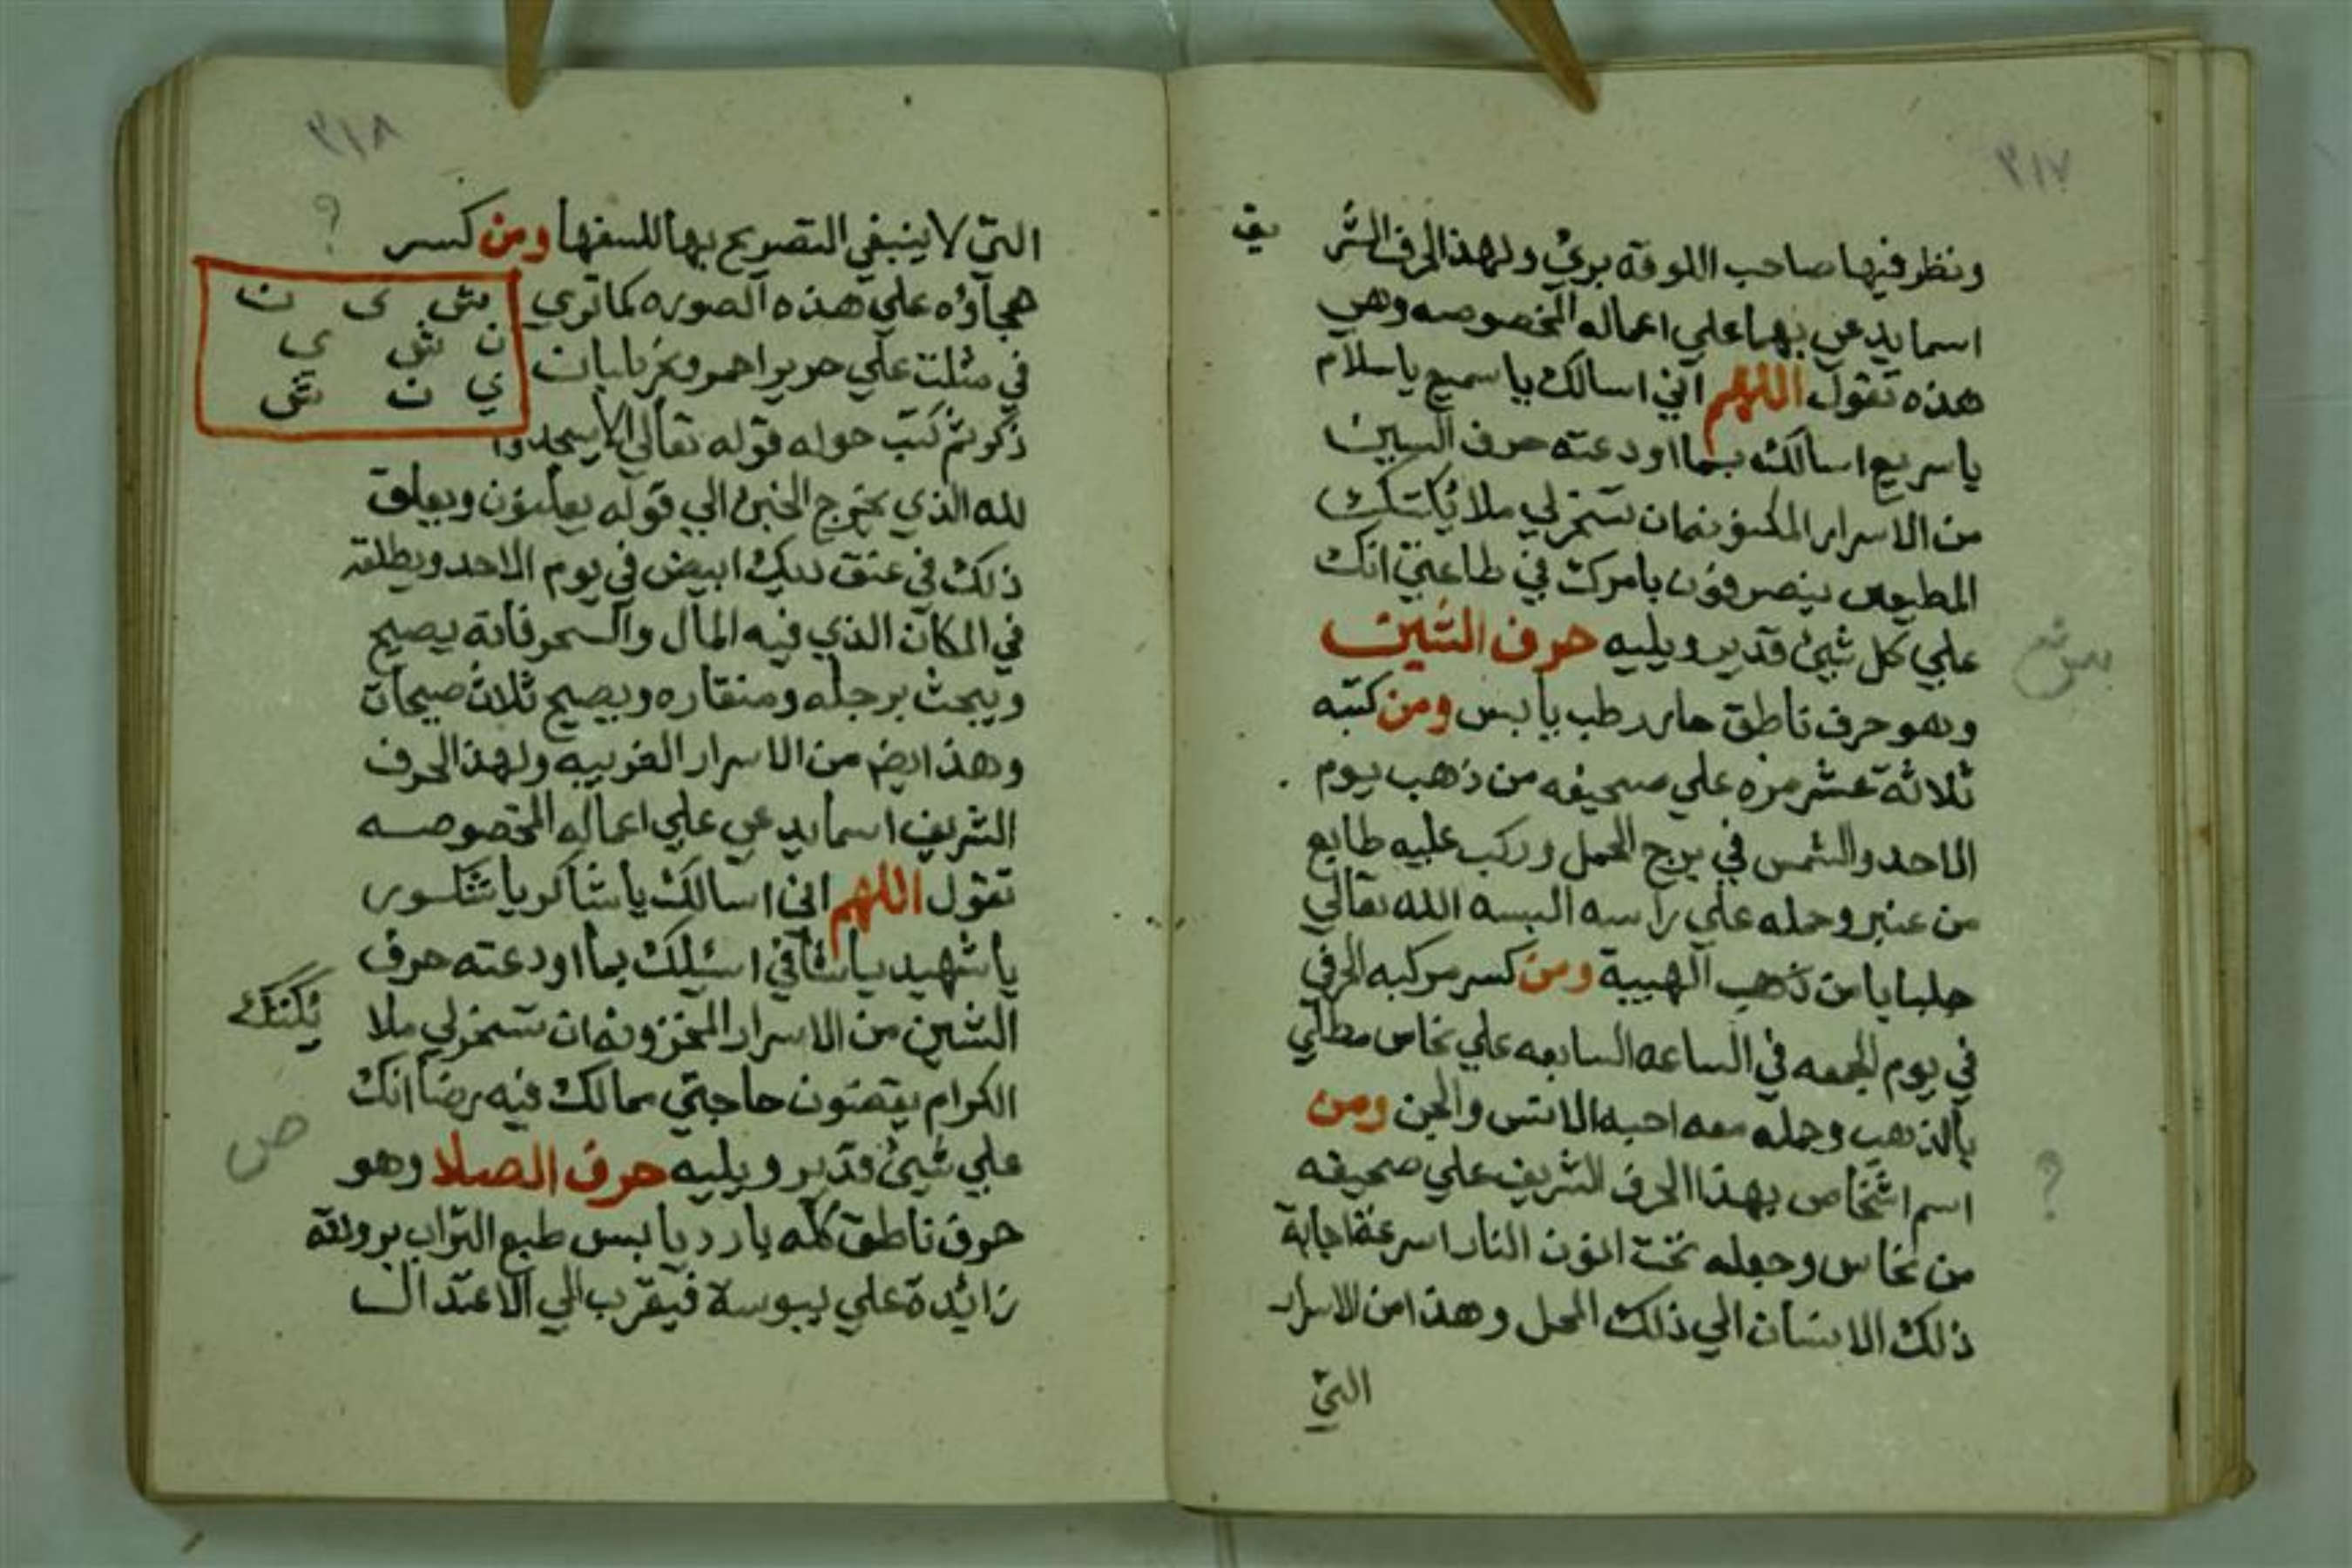 ٣١٧
ونظر فيها صاحب اللوقة بري ولهذا الحرف الشر
يف
اسما يدعي بها علي اعماله المخصوصه وهي
هذه تقول اللهم اني اسالك يا سميع يا سلام
يا سريع اسالك بما اودعته حرف السين
من الاسرار المكنونه ان تسخر لي ملائكتك
المطيعين ينصرفون بامرك في طاعتي انك
علي كل شيئ قدير ويليه حرف الشين
س ش
وهو حرف ناطق حار رطب يابس ومن كتبه
ثلاثة عشر مره علي صحيفه من ذهب يوم
الاحد والشمس في برج الحمل وركب عليه طابع
من عنبر وحمله علي راسه البسه الله تعالي
جلبابا من ذهب الهيبة ومن كسر مركبه الحرفي
في يوم الجمعه في الساعه السابعه علي نحاس مطلي
بالذهب وحمله معه احبه الانس والجن ومن
اسم اشخاص بهذا الحرف الشريف علي صحيفه
؟
من نحاس وجعله تحت النار اسرعة اجابة
ذلك الانسان الي ذلك المحل وهذا من الاسرار
التي
٣١٨
التي لا ينبغي التصريح بها للسفها ومن كسر
؟
هجاؤه علي هذه الصوره كما تري
في مثلث علي حرير احمر وبخر بلبان
ذكر ثم كتب حوله قوله تعالي الا يسجدوا
ش ي ن
ن ش ي
ي ن ش
لله الذي يخرج الخبئ الي قوله يعلنون ويعلق
ذلك في عنق ديك ابيض في يوم الاحد ويطلقه
في المكان الذي فيه المال والسحر فانه يصيح
ويبحث برجله ومنقاره ويصيح ثلاث صيحات
وهذا ايض من الاسرار الغريبه ولهذا الحرف
الشريف اسما يدعي علي اعماله المخصوصه
تقول اللهم اني اسالك يا شاكر يا شكور
يا شهيد يا شافي اسئلك بما اودعته حرف
الشين من الاسرار المخزونه ان تسخر لي ملا
ئكتك
الكرام يقضون حاجتي مما لك فيه رضا انك
علي شيئ قدير ويليه حرف الصاد وهو
ص
حرف ناطق كله بارد يابس طبع التراب برودته
زائدة علي يبوسة فيقرب الي الاعتدال